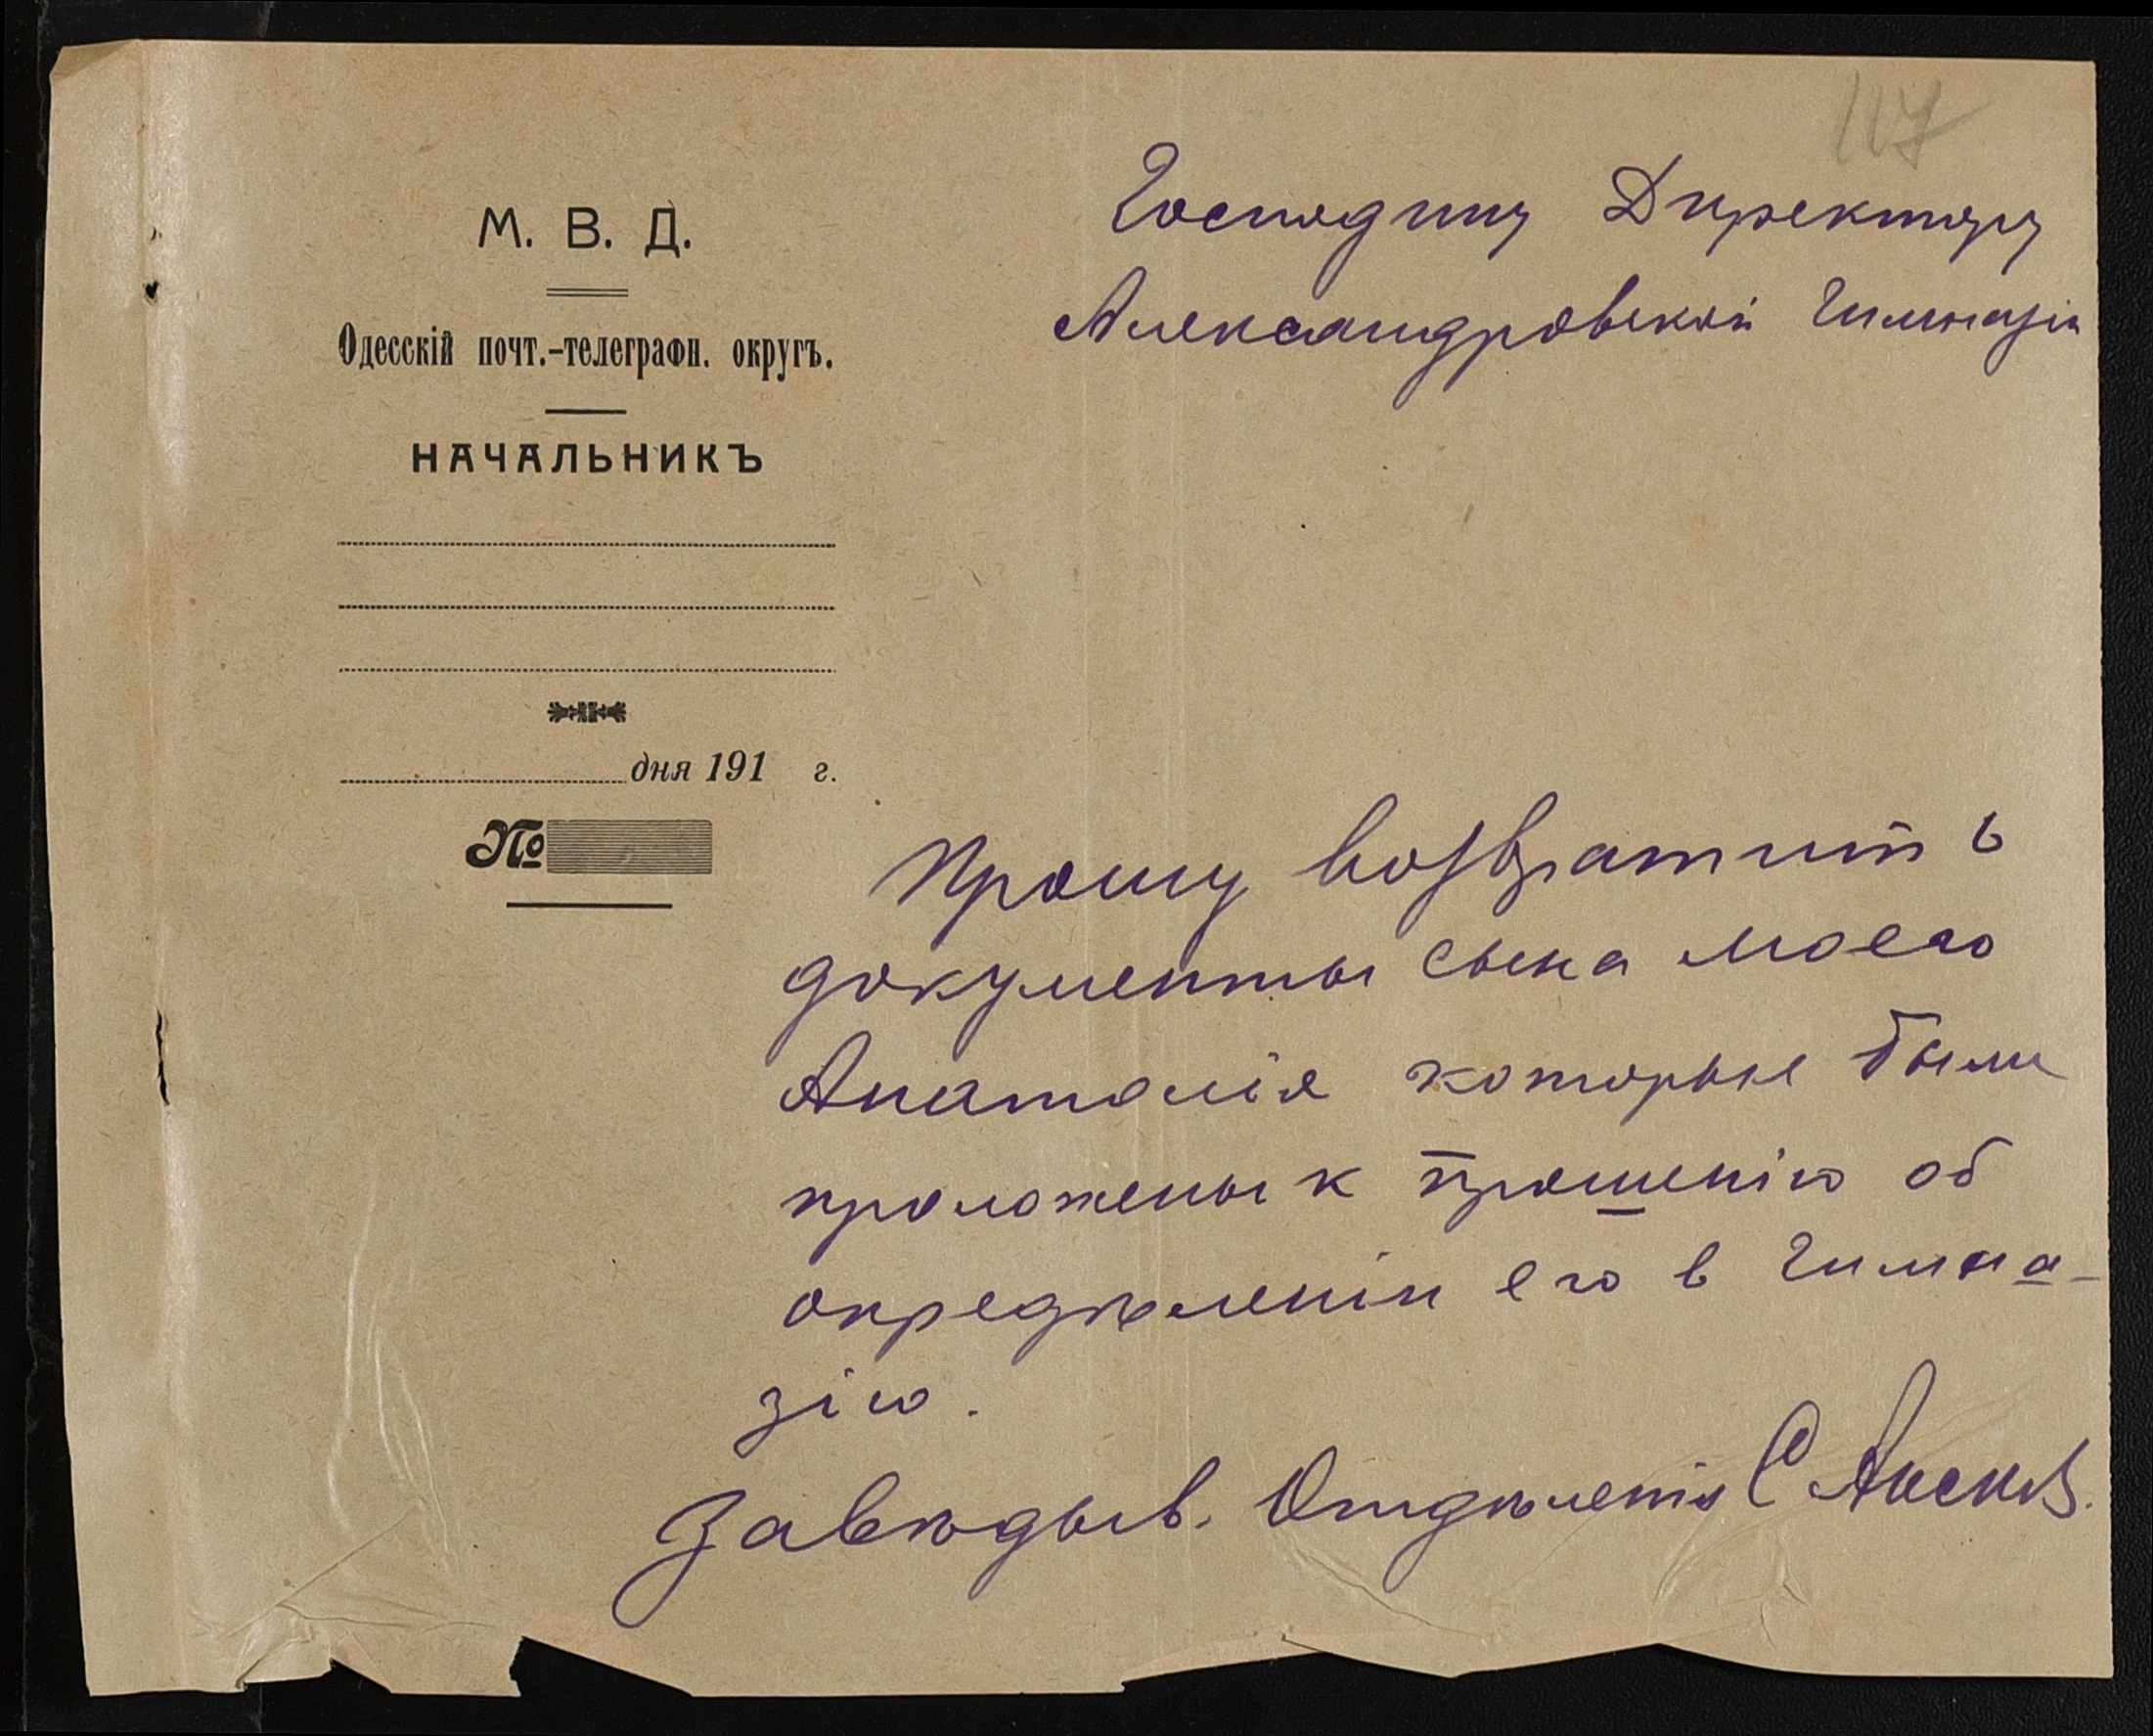 117
М. В. Д.
Одесскій почт.-телеграфн. округъ.
НАЧАЛЬНИКЪ
дня 191 г.
№
Господину Директору
Александровской Гимназіи
Прошу возвратить
документы сына моего
Анатолія которые были
проложены к прошенію об
опредѣленіи его в Гимна-
зію.
Завѣдыв. Отдѣленія С